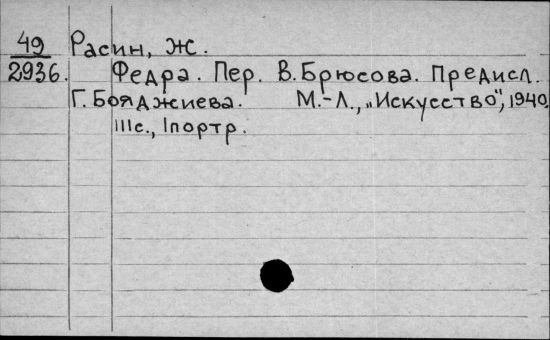 49 Расин, Ж.
2936. Федра. Пер. В. Брюсова. Предисл.
Г. Бояджиева. М.-Л., „Искусство", 1940,
111с., 1портр.